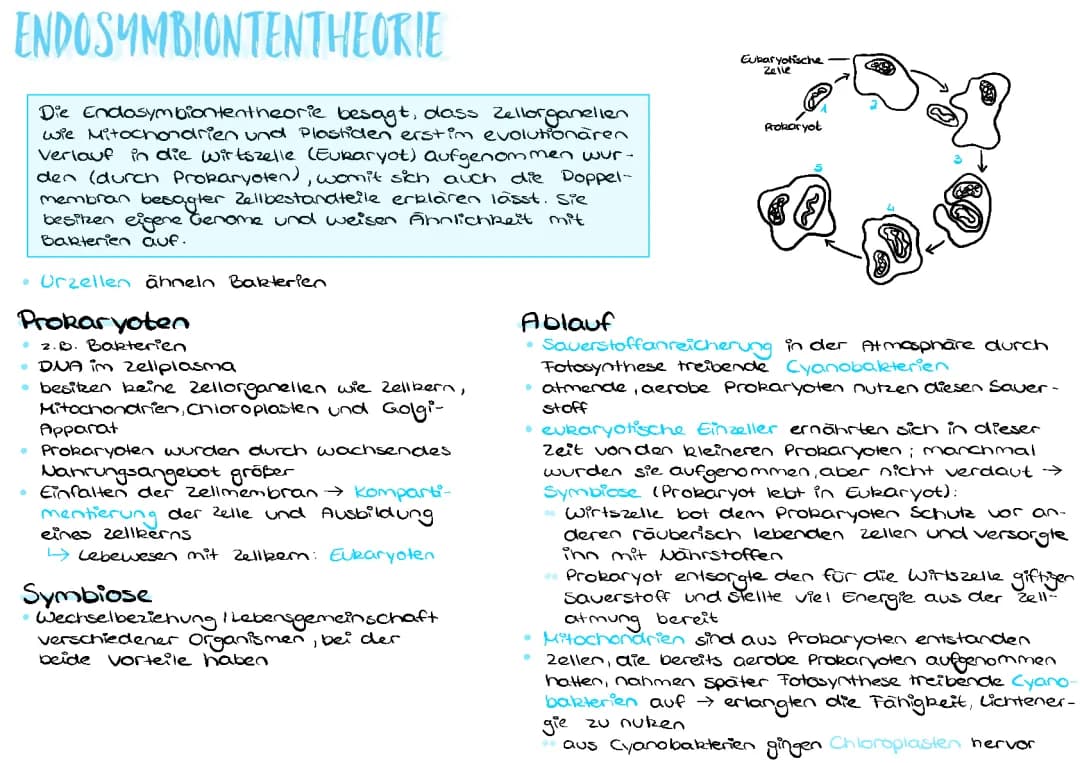 ENDOSYMBIONTENTHEORIE
Die Endosymbiontentheorie besagt, dass Zellorganellen
wie Mitochondrien und Plastiden erst im evolutionären
Verlauf in die Wirtszelle (Eukaryot) aufgenommen wur-
den (durch Prokaryoten), womit sich auch die Doppel-
membran besagter Zellbestandteile erklären lässt. Sie
besitzen eigene Genome und weisen Ähnlichkeit mit
Bakterien auf.
Eukaryotische
Zelle
Prokaryot
1
2
3
4
5
• Urzellen ähneln Bakterien
Prokaryoten
• z.B. Bakterien
• DNA im Zellplasma
• besitzen keine Zellorganellen wie Zellkern,
Mitochondrien, Chloroplasten und Golgi-
Apparat
• Prokaryoten wurden durch wachsendes
Nahrungsangebot größer
• Einfalten der Zellmembran → Komparti-
mentierung der Zelle und Ausbildung
eines Zellkerns
↳ Lebewesen mit Zellkern: Eukaryoten
Symbiose
• Wechselbeziehung / Lebensgemeinschaft
verschiedener Organismen, bei der
beide Vorteile haben
Ablauf
• Sauerstoffanreicherung in der Atmosphäre durch
Fotosynthese treibende Cyanobakterien
• atmende, aerobe Prokaryoten nutzen diesen Sauer-
stoff
• eukaryotische Einzeller ernährten sich in dieser
Zeit von den kleineren Prokaryoten; manchmal
wurden sie aufgenommen, aber nicht verdaut →
Symbiose (Prokaryot lebt in Eukaryot):
•• Wirtszelle bot dem Prokaryoten Schutz vor an-
deren räuberisch lebenden Zellen und versorgte
ihn mit Nährstoffen
•• Prokaryot entsorgte den für die Wirtszelle giftigen
Sauerstoff und stellte viel Energie aus der Zell-
atmung bereit
• Mitochondrien sind aus Prokaryoten entstanden
• Zellen, die bereits aerobe Prokaryoten aufgenommen
hatten, nahmen später Fotosynthese treibende Cyano-
bakterien auf → erlangten die Fähigkeit, Lichtener-
gie zu nutzen
•• aus Cyanobakterien gingen Chloroplasten hervor